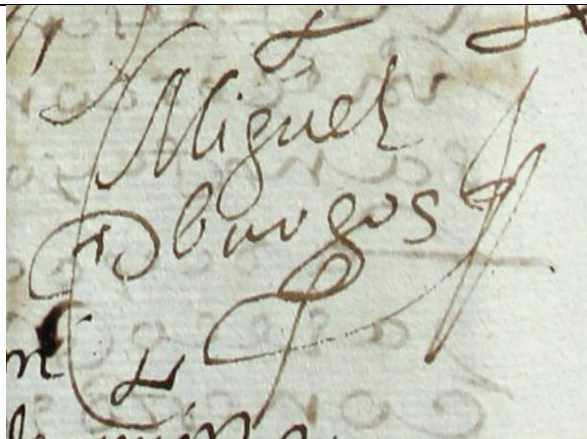 Miguel
Dburgos